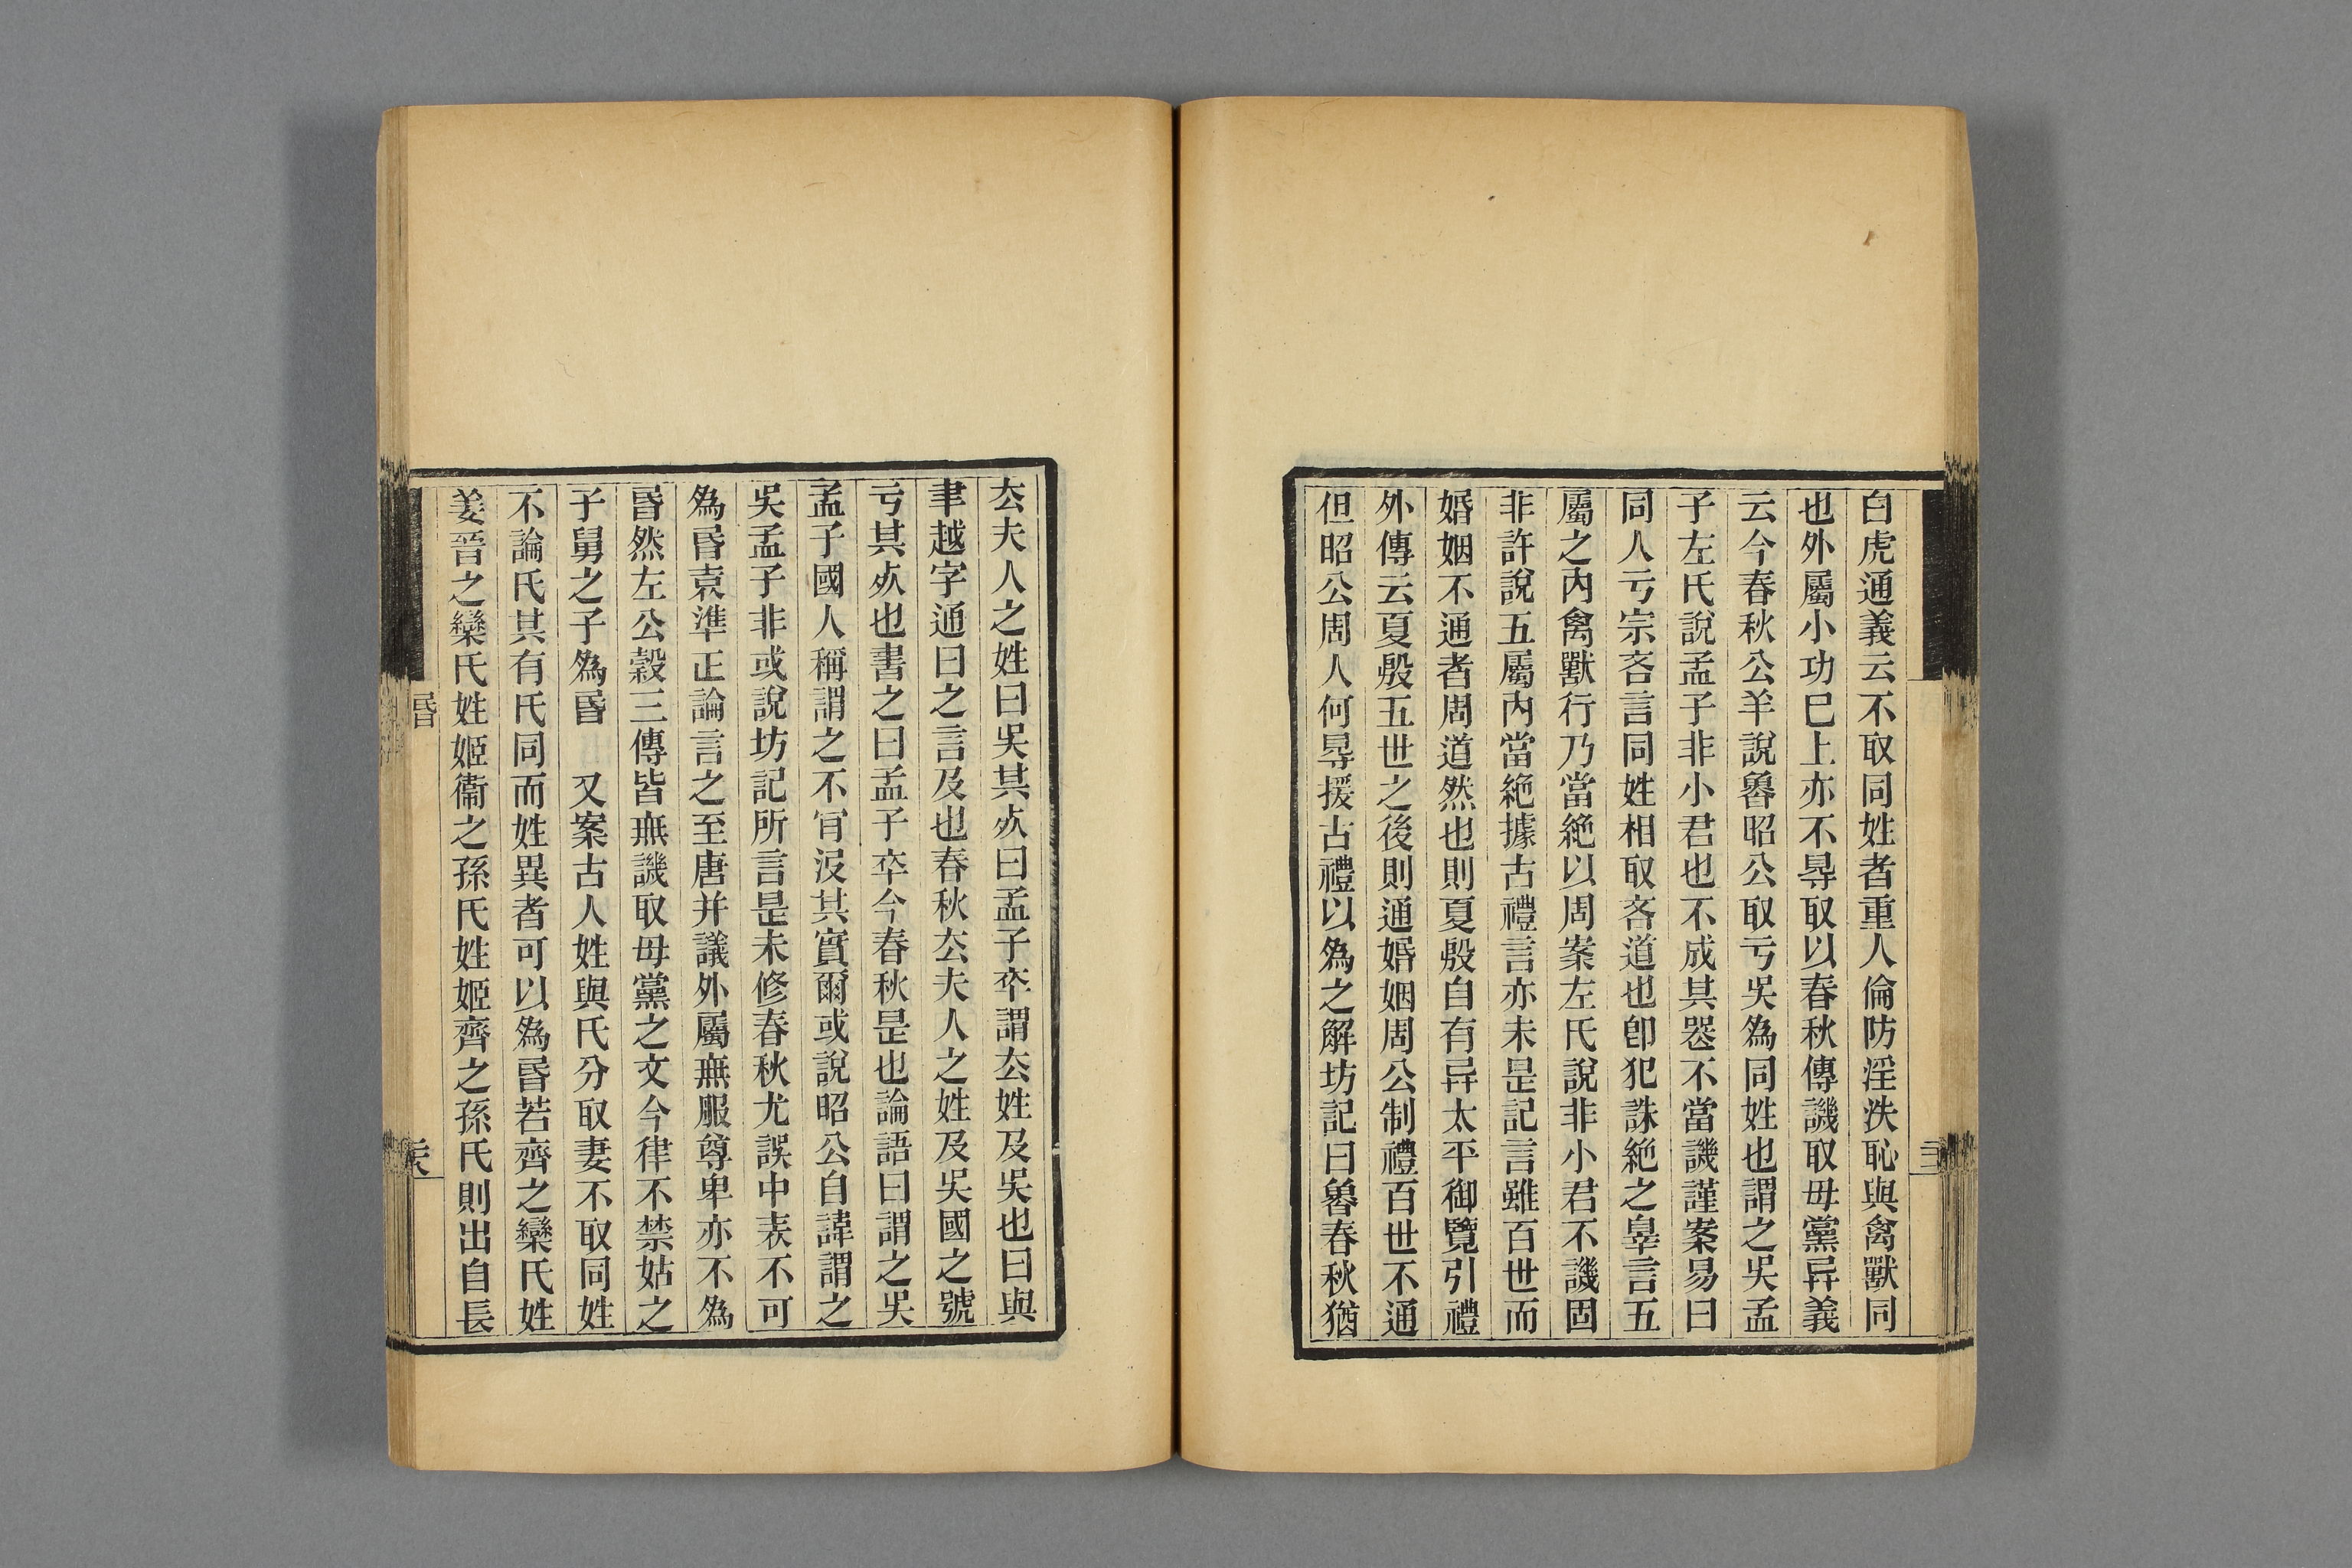 白虎通義云不取同姓者重人倫防淫泆恥與禽獸同
也外屬小功巳上亦不䙷取以春秋傳譏取毋黨异義
云今春秋公羊說魯昭公取亏吳為同姓也謂之吳孟
子左氏說孟子非小君也不成其器不當譏謹案易曰
同人亏宗吝言同姓相取吝道也卽犯誅絕之辠言五
屬之內禽獸行乃當絕以周案左氏說非小君不譏固
非許說五屬內當絕據古禮言亦未是記言雖百世而
婚姻不通者周道然也則夏殷自有异太平御覽引禮
外傳云夏殷五世之後則通婚姻周公制禮百世不通
但昭公周人何䙷援古禮以為之解坊記曰魯春秋猶
厺夫人之姓曰吳其𣦸曰孟子卒謂厺姓及吳也曰與
聿越字通曰之言及也春秋厺夫人之姓及吳國之號
亏其𣦸也書之曰孟子卒今春秋是也論語曰謂之吳
孟子國人稱謂之不肎沒其實爾或說昭公自諱謂之
吳孟子非或說坊記所言是未修春秋尤誤中表不可
為昬袁準正論言之至唐并議外屬無服尊卑亦不為
昬然左公穀三傳皆無譏取毋黨之文今律不禁姑之
子舅之子為昬　又案古人姓與氏分取妻不取同姓
不論氏其有氏同而姓異者可以為昬若齊之欒氏姓
姜晉之欒氏姓姬衞之孫氏姓姬齊之孫氏則出自長
昬